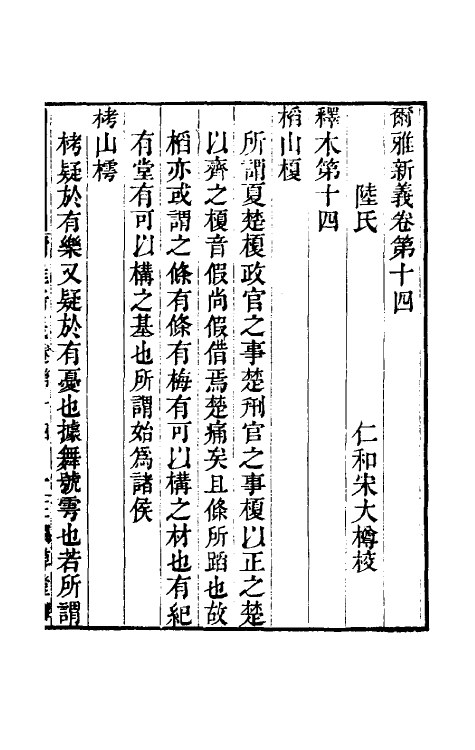 爾雅新義卷第十四
陸氏　仁和宋大樽校
釋木第十四
槄山榎
所謂夏楚榎政官之事楚刑官之事榎以正之楚
以齊之榎音假尚假借焉楚痛矣且條所蹈也故
槄亦或謂之條有條有梅有可以構之材也有紀
有堂有可以構之基也所謂始爲諸侯
栲山樗
栲疑於有樂又疑於有憂也據舞號雩也若所謂